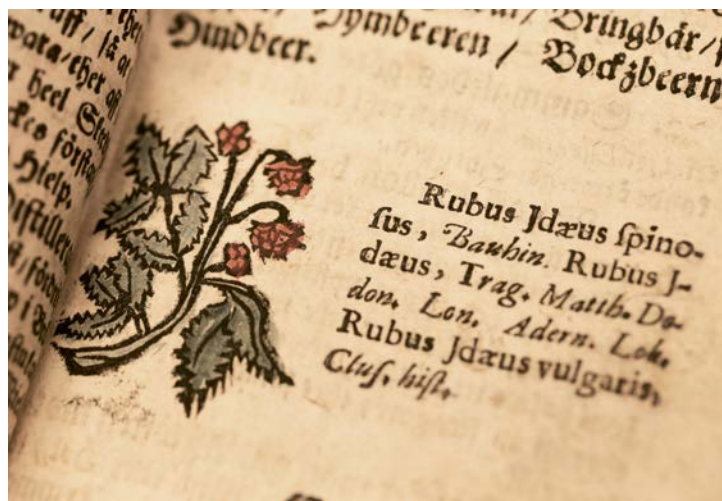 så at
heel
Hielp.
Bringbär/
Hymbeeren / Bockzbeern
Hindbeer.
Rubus Jdæus ſpino-
ſus, Bauhin. Rubus J-
dæus, Trag. Matth. Do-
don. Lon. Adern. Lob.
Rubus Jdæus vulgaris,
Cluſ. hiſt.